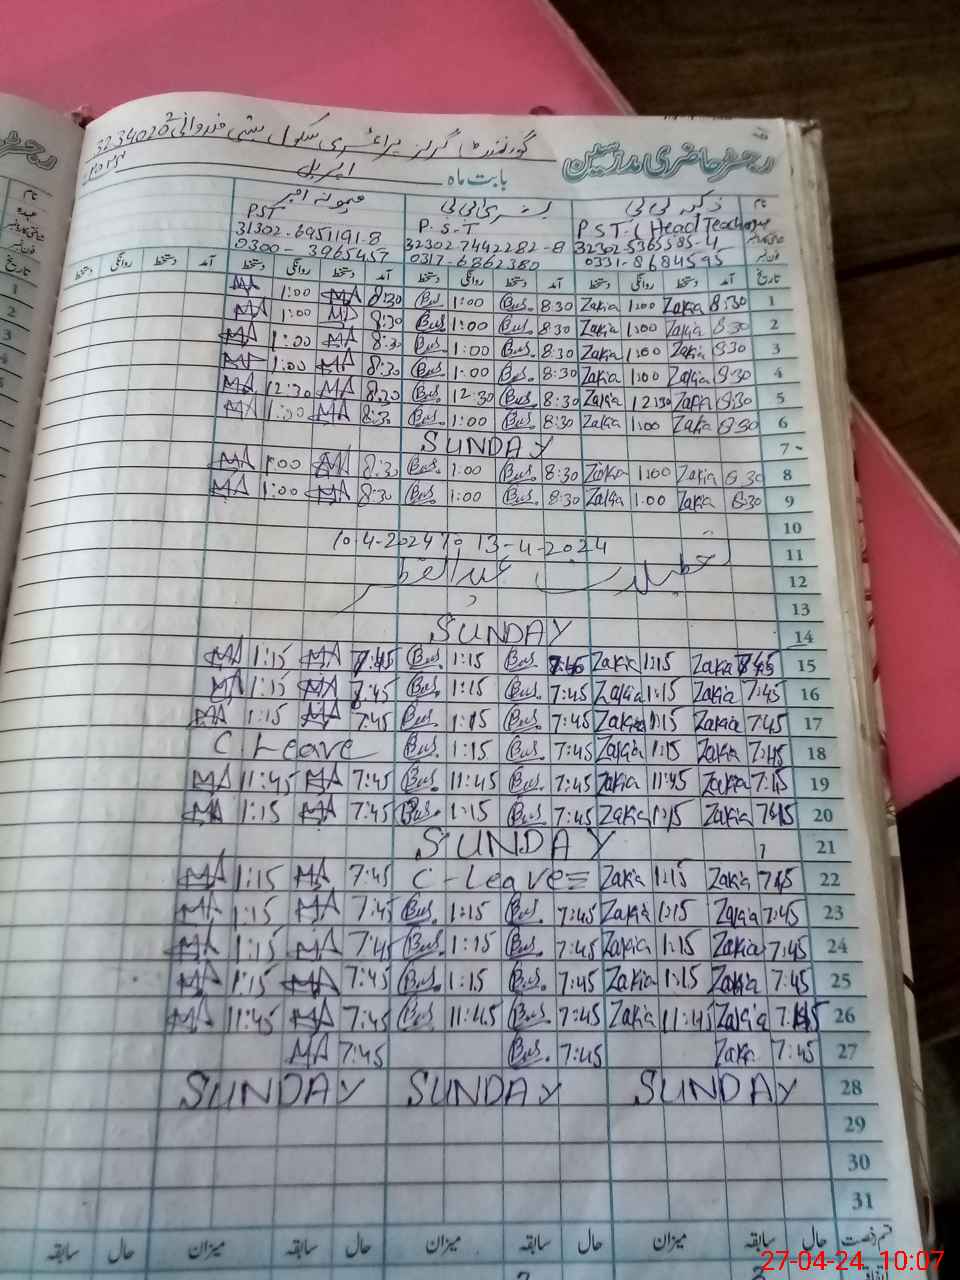 رجسٹر حاضری مدارسین
گورنمنٹ گرلز پرائمری سکول بستی 32340202
بابت ماہ اپریل
نام ذکیہ بی بی بشریٰ بی بی میمونہ امبر
PST (Head Teacher P.S.T PST
32302-5365585-4 32302 7442282-8 31302-6951191-8
0331-8684595 0317-6862380 0300-3965457
تاریخ آمد دستخط روانگی دستخط آمد دستخط روانگی دستخط آمد دستخط روانگی دستخط آمد دستخط روانگی دستخط
1 8:30 Zakia 1:00 Zakia 8:30 Bus. 1:00 Bus. 8:30 MA 1:00 MA
2 8:30 Zakia 1:00 Zakia 8:30 Bus. 1:00 Bus. 8:30 MA 1:00 MA
3 8:30 Zakia 1:00 Zakia 8:30 Bus. 1:00 Bus. 8:30 MA 1:00 MA
4 8:30 Zakia 1:00 Zakia 8:30 Bus. 1:00 Bus. 8:30 MA 1:00 MA
5 8:30 Zakia 12:30 Zakia 8:30 Bus. 12:30 Bus. 8:30 MA 12:30 MA
6 8:30 Zakia 1:00 Zakia 8:30 Bus. 1:00 Bus. 8:30 MA 1:00 MA
7 SUNDAY
8 8:30 Zakia 1:00 Zakia 8:30 Bus. 1:00 Bus. 8:30 MA 1:00 MA
9 8:30 Zakia 1:00 Zakia 8:30 Bus. 1:00 Bus. 8:30 MA 1:00 MA
10
11 10-4-2024 To 13-4-2024
12 تعطیلات عید الفطر
13
14 SUNDAY
15 7:45 Zakia 1:15 Zakia 7:45 Bus. 1:15 Bus. 7:45 MA 1:15 MA
16 7:45 Zakia 1:15 Zakia 7:45 Bus. 1:15 Bus. 7:45 MA 1:15 MA
17 7:45 Zakia 1:15 Zakia 7:45 Bus. 1:15 Bus. 7:45 MA 1:15 MA
18 7:45 Zakia 1:15 Zakia 7:45 Bus. 1:15 Bus. C Leave
19 7:45 Zakia 11:45 Zakia 7:45 Bus. 11:45 Bus. 7:45 MA 11:45 MA
20 7:45 Zakia 1:15 Zakia 7:45 Bus. 1:15 Bus. 7:45 MA 1:15 MA
21 SUNDAY
22 7:45 Zakia 1:15 Zakia C-Leave 7:45 MA 1:15 MA
23 7:45 Zakia 1:15 Zakia 7:45 Bus. 1:15 Bus. 7:45 MA 1:15 MA
24 7:45 Zakia 1:15 Zakia 7:45 Bus. 1:15 Bus. 7:45 MA 1:15 MA
25 7:45 Zakia 1:15 Zakia 7:45 Bus. 1:15 Bus. 7:45 MA 1:15 MA
26 7:45 Zakia 11:45 Zakia 7:45 Bus. 11:45 Bus. 7:45 MA 11:45 MA
27 7:45 Zakia 7:45 Bus. 7:45 MA
28 SUNDAY SUNDAY SUNDAY
29
30
31
قسم رخصت سابقہ حال میزان سابقہ حال میزان سابقہ حال میزان سابقہ حال
27-04-24 10:07